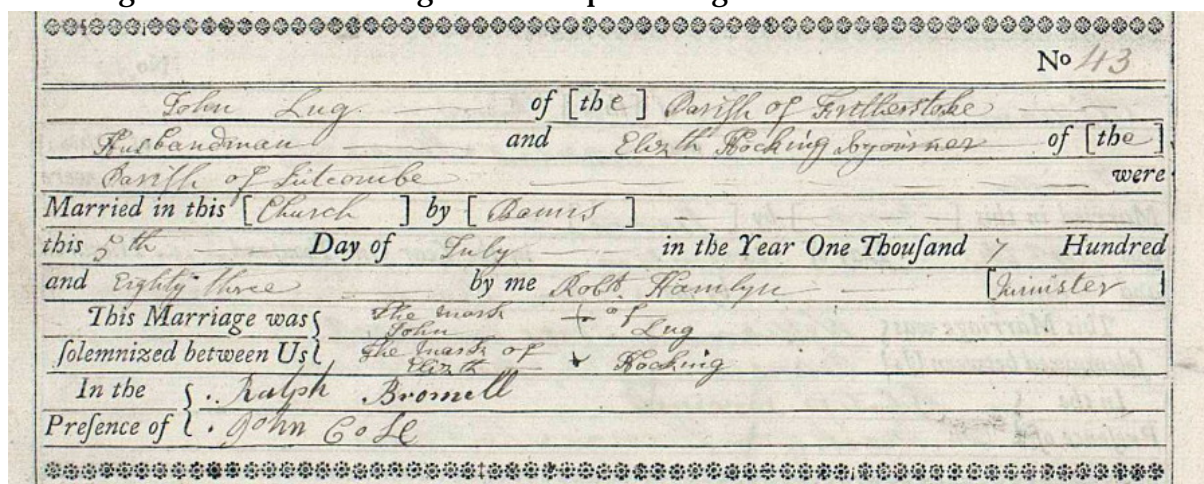 No 43
John Lug of [the] Parish of Frithelstoke
Husbandman and Elizth Hocking Sojourner of [the]
Parish of Sutcombe were
Married in this [Church] by [Banns]
this 5th Day of July in the Year One Thouſand 7 Hundred
and Eighty three by me Robt. Hamlyn [Minister]
This Marriage was The mark + of
John Lug
ſolemnized between Us The mark of
Elizth Hocking
In the Ralph Bromell
Preſence of John Cole